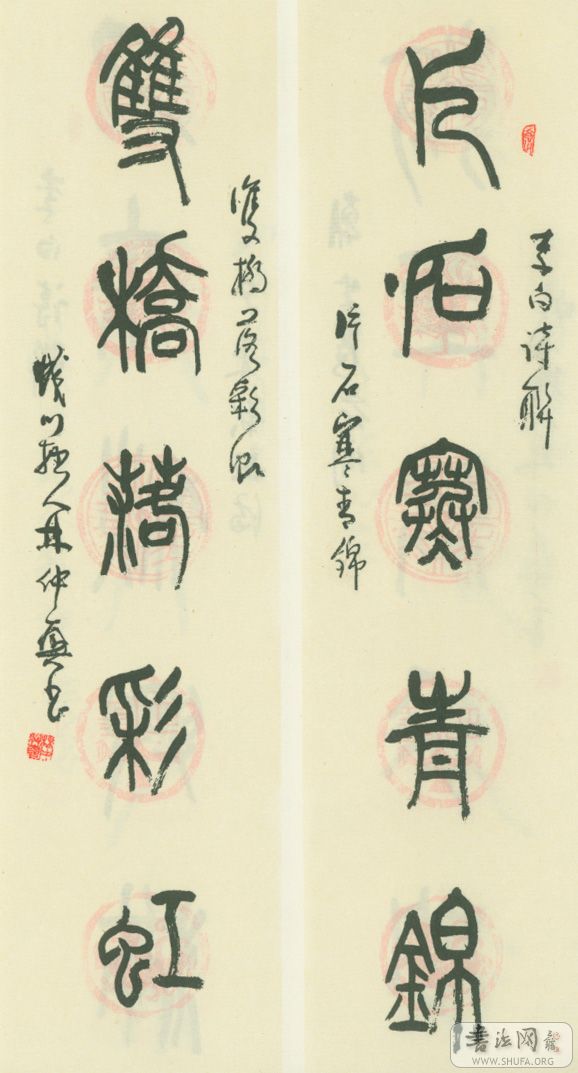 李白詩聯
片石寒青錦
片石寒青錦
雙橋落彩虹
雙橋落彩虹
人林仲興书
書法网
WWW.SHUFA.ORG